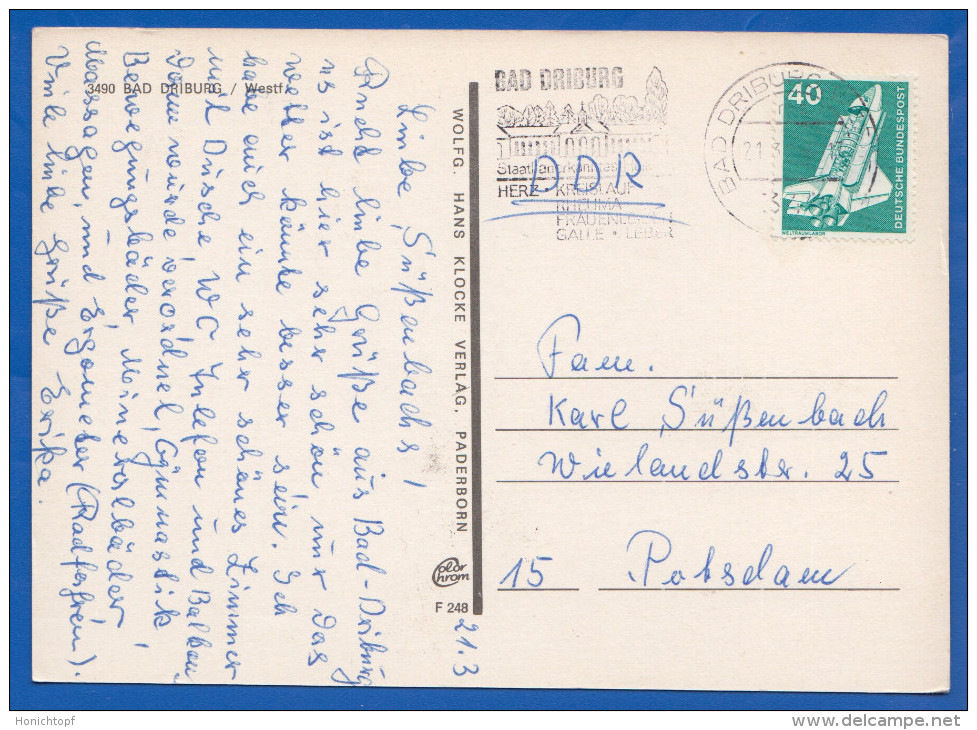 3490 BAD DRIBURG / Westf.
21.3
Liebe Süßenbachs!
Auch liebe Grüße aus Bad-Driburg
es ist hier sehr schön, nur das
Wetter könnte besser sein. Ich
habe auch ein sehr schönes Zimmer
mit Dusche WC Telefon und Balkon
Dann wurde verordnet, Gymnastik
Bewegungsbäder, Mineralbäder
Massagen, und Ergometer (Radfahren).
Viele liebe Grüße Erika.
WOLFG. HANS KLOCKE VERLAG, PADERBORN
Color Chrom
F 248
BAD DRIBURG
Staatl. anerkanntes
HERZ - KREISLAUF
RHEUMA
FRAUENLEIDEN
GALLE • LEBER
DDR
BAD DRIBURG
21.3
40
DEUTSCHE BUNDESPOST
WELTRAUMLABOR
Fam.
Karl Süßenbach
Wielandstr. 25
15 Potsdam
Honichtopf
www.delcampe.net